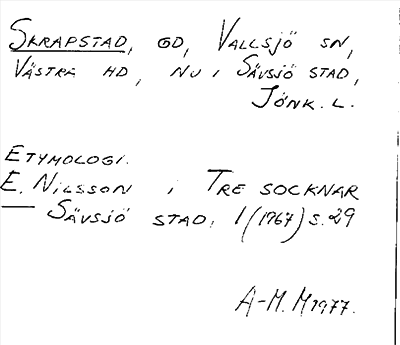 SKRAPSTAD, GD, VALLSJÖ SN,
VÄSTRA HD, NU I SÄVSJÖ STAD,
JÖNK. L.
ETYMOLOGI.
E. NILSSON I TRE SOCKNAR
— SÄVSJÖ STAD, 1 (1967) S. 29
A-M. M 1977.